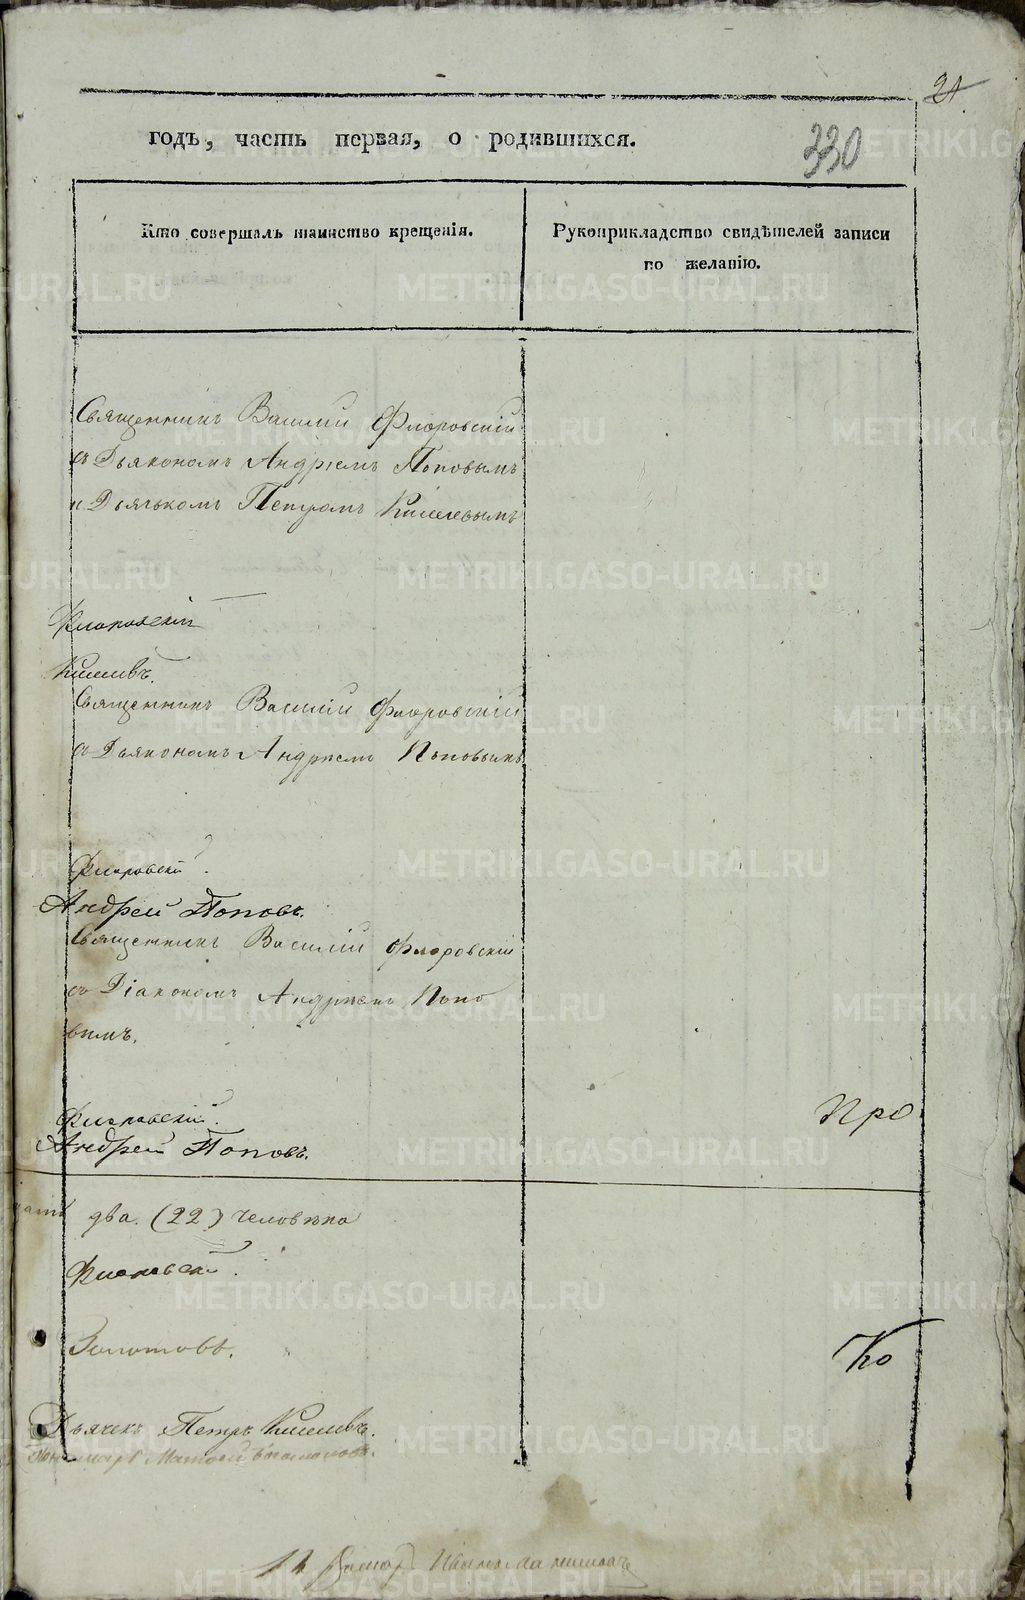 21
годъ, часть первая, о родившихся.
330
Кто совершалъ таинство крещенія.
Рукоприкладство свидѣтелей записи
по желанію.
Священникъ Василій Флоровскій
съ Дьякономъ Андреемъ Поповымъ
и Дьячькомъ Петромъ Киселевымъ
Флоровскій
Киселевъ.
Священникъ Василій Флоровскій
съ Дьякономъ Андреемъ Поповымъ
Флоровскій.
Андрей Поповъ.
Священникъ Василій Флоровскій
съ Діакономъ Андреемъ Попо
вымъ.
Флоровскій.
Андрей Поповъ.
Про
два. (22) человѣка
Флоровскій.
Золотовъ.
Ко
Дьячекъ Петръ Киселевъ.
Пономарь Матвей
METRIKI.GASO-URAL.RU